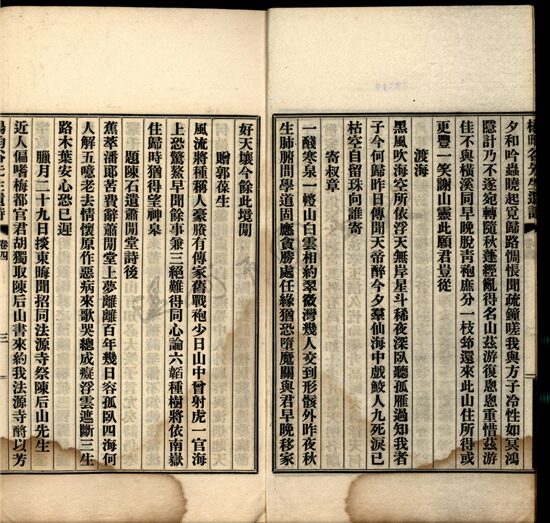 夕和吟蟲曉起覓歸路惆悵聞疏鐘嗟我與方子冷性如冥鴻
隱計乃不遂宛轉隨秋蓬經亂得名山茲游復悤悤重惜茲游
佳不與橫溪同早晚脫青袍廡分一枝筇還來此山住所得或
更豐一笑謝山靈此願君豈從
渡海
黑風吹海空所依浮天無岸星斗稀夜深臥聽孤雁過知我者
子今何歸昨日傳聞天帝醉今夕羣仙海中戲鮫人九死淚已
枯空自留珠向誰寄
寄叔章
一醆寒泉一樽山白雲相約翠微灣幾人交到形骸外昨夜秋
生肺腑間學道固應貪勝處任緣猶恐墮魔關與君早晚移家
好天壤今餘此境閒
贈郭葆生
風流將種稱人豪賸有傳家舊戰袍少日山中曾射虎一官海
上恐驚鰲早聞餘事兼三絕難得同心論六韜種樹將依南嶽
住歸時猶得望神皋
題陳石遺蕭閒堂詩後
蕉萃潘郎苦費辭蕭閒堂上夢離離百年幾日容孤臥四海何
人解五噫老去情懷原作惡病來歌哭總成癡浮雲遮斷三生
路木葉安心恐已遲
臘月二十九日掞東晦聞招同法源寺祭陳后山先生
近人偏嗜梅都官君胡獨取陳后山書來約我法源寺酹以芳
卷四
三